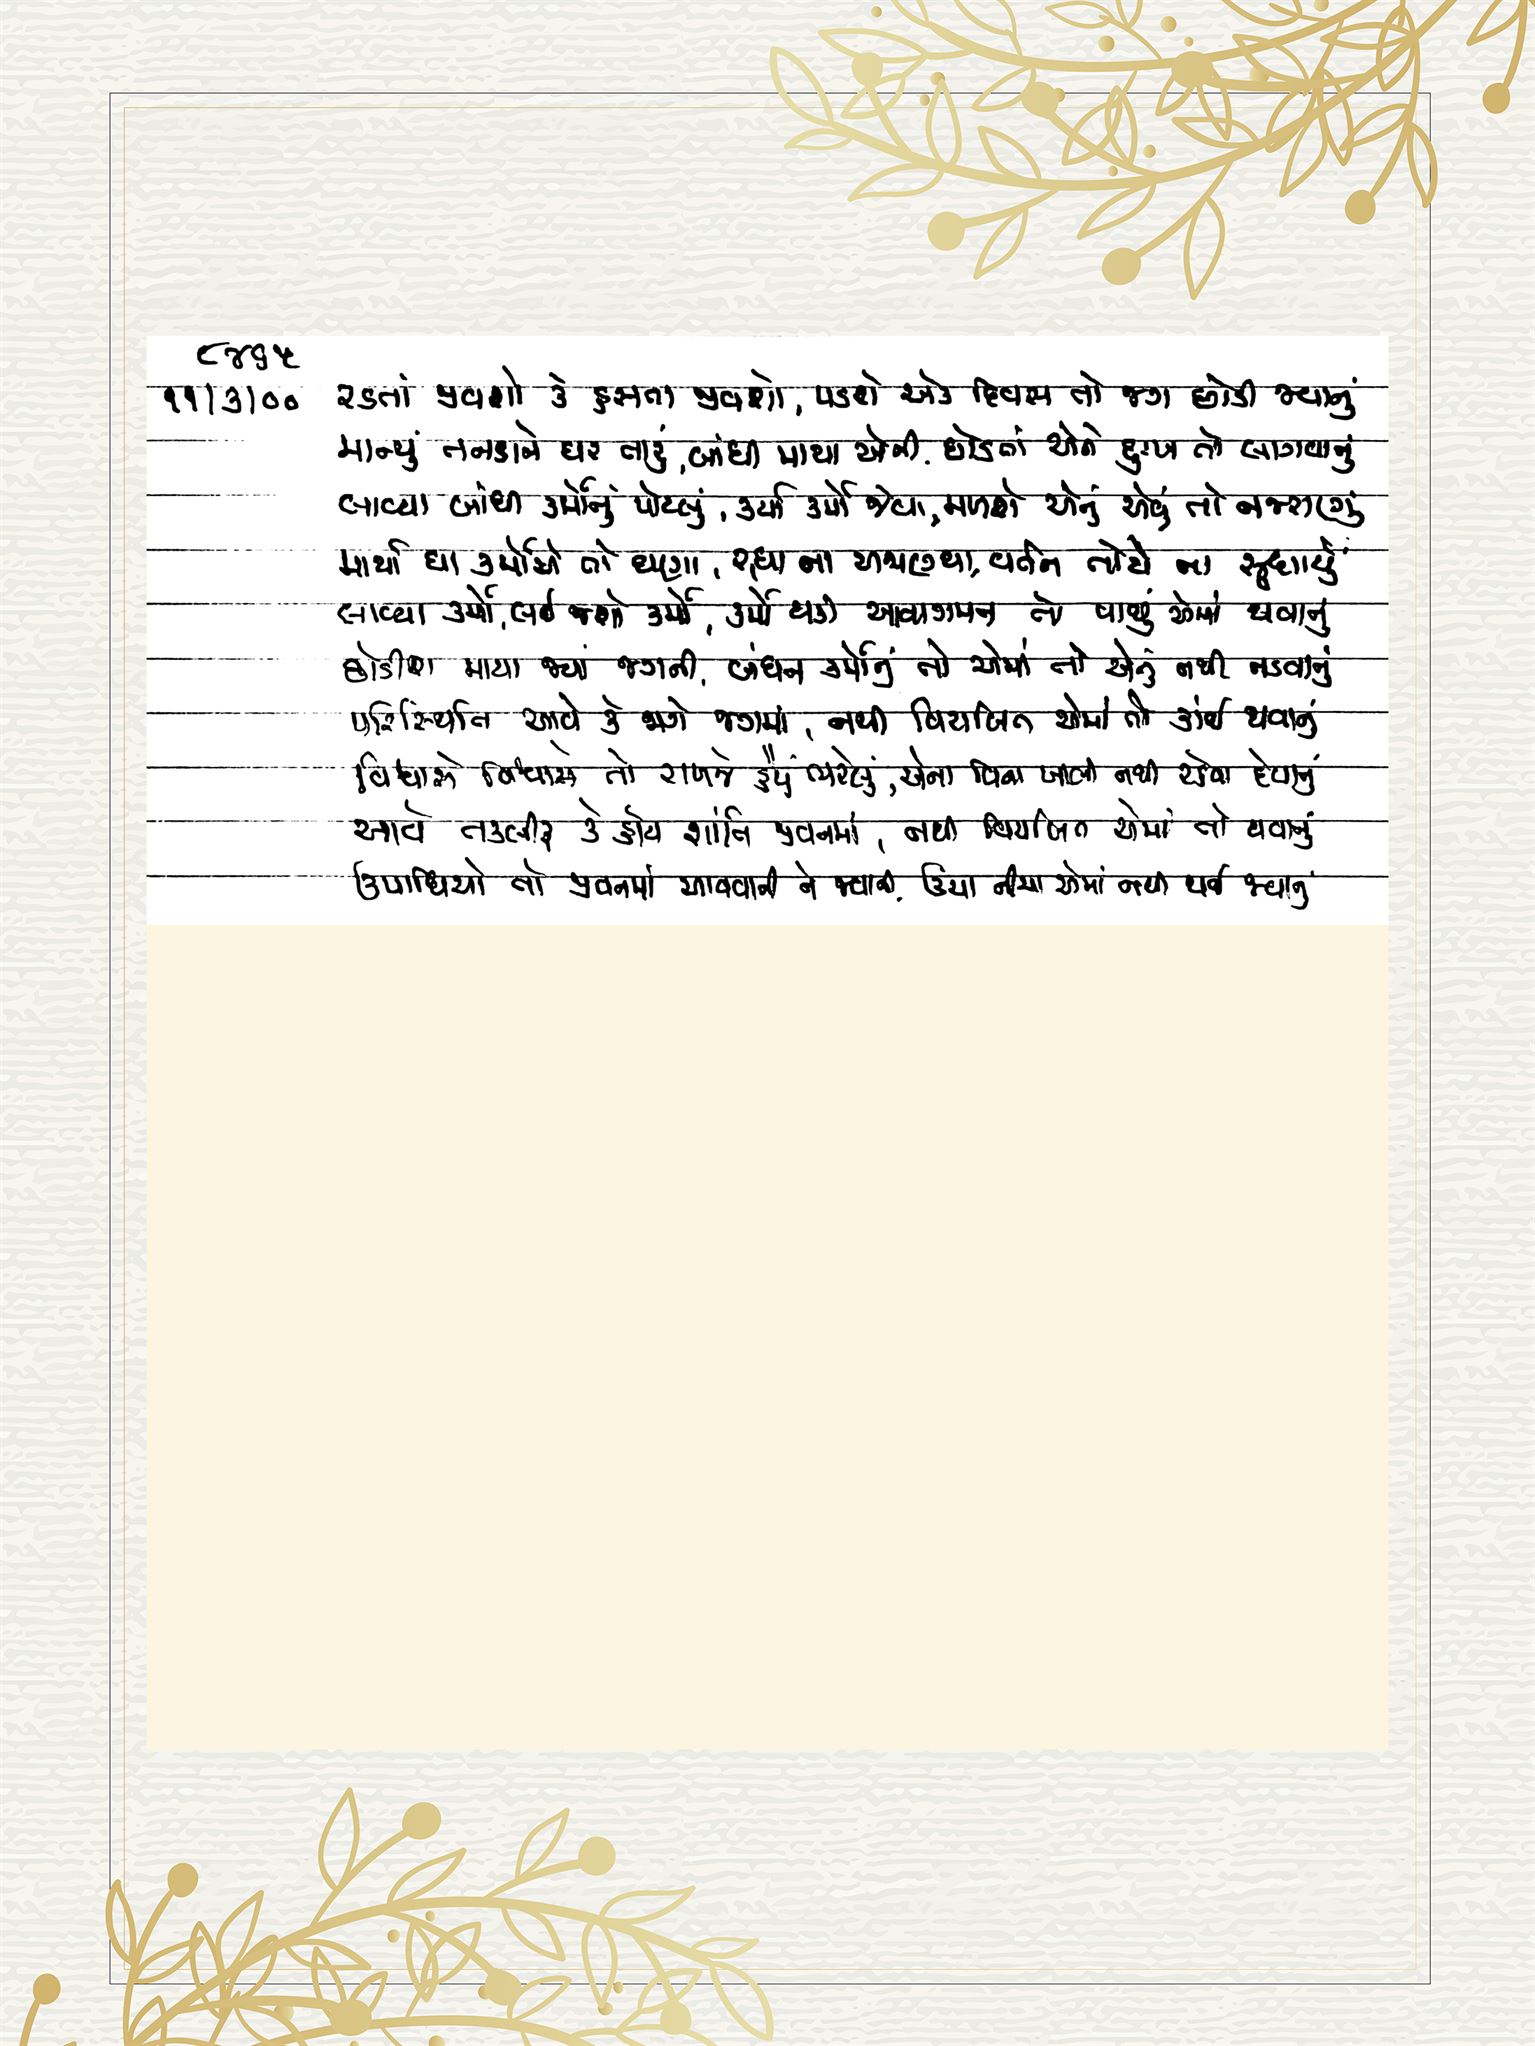 ૮૪૬૫
૧૧/૩/૦૦ રડતાં જીવશો કે હસતા જીવશો, પડશે એક દિવસ તો જગ છોડી જવાનું
માન્યું તનડાને ઘર તારું, બાંધી માયા એની, છોડતાં એને દુઃખ તો લાગવાનું
લાવ્યા બાંધી કર્મોનું પોટલું, કર્યા કર્મો જેવા, મળશે એનું એવું તો નજરાણું
માર્યા ઘા કર્મોએ તો ઘણા, રાધા ના વર્તન તોયે ના સુધાર્યું
લાવ્યા કર્મો, લઈ જાશો કર્મો, કર્મો થકી આવાગમન તો પાછું એમાં થવાનું
છોડીશ માયા જ્યાં જગની, બંધન કર્મોનું તો એમાં તો એનું નથી નડવાનું
પરિસ્થિતિ આવે કે ભાગે જગમાં, નથી વિચલિત એમાં તો કાંઈ થવાનું
વિશ્વાસે વિશ્વાસે તો રાખજે હૈયું ભરેલું, એના વિના ખાલી નથી રહેવા દેવાનું
આવે તકલીફ કે હોય શાંતિ જીવનમાં, નથી વિચલિત એમાં તો થવાનું
ઉપાધિઓ તો જીવનમાં આવવાની ને જવાની, ઊંચા નીચા એમાં નથી થઈ જવાનું